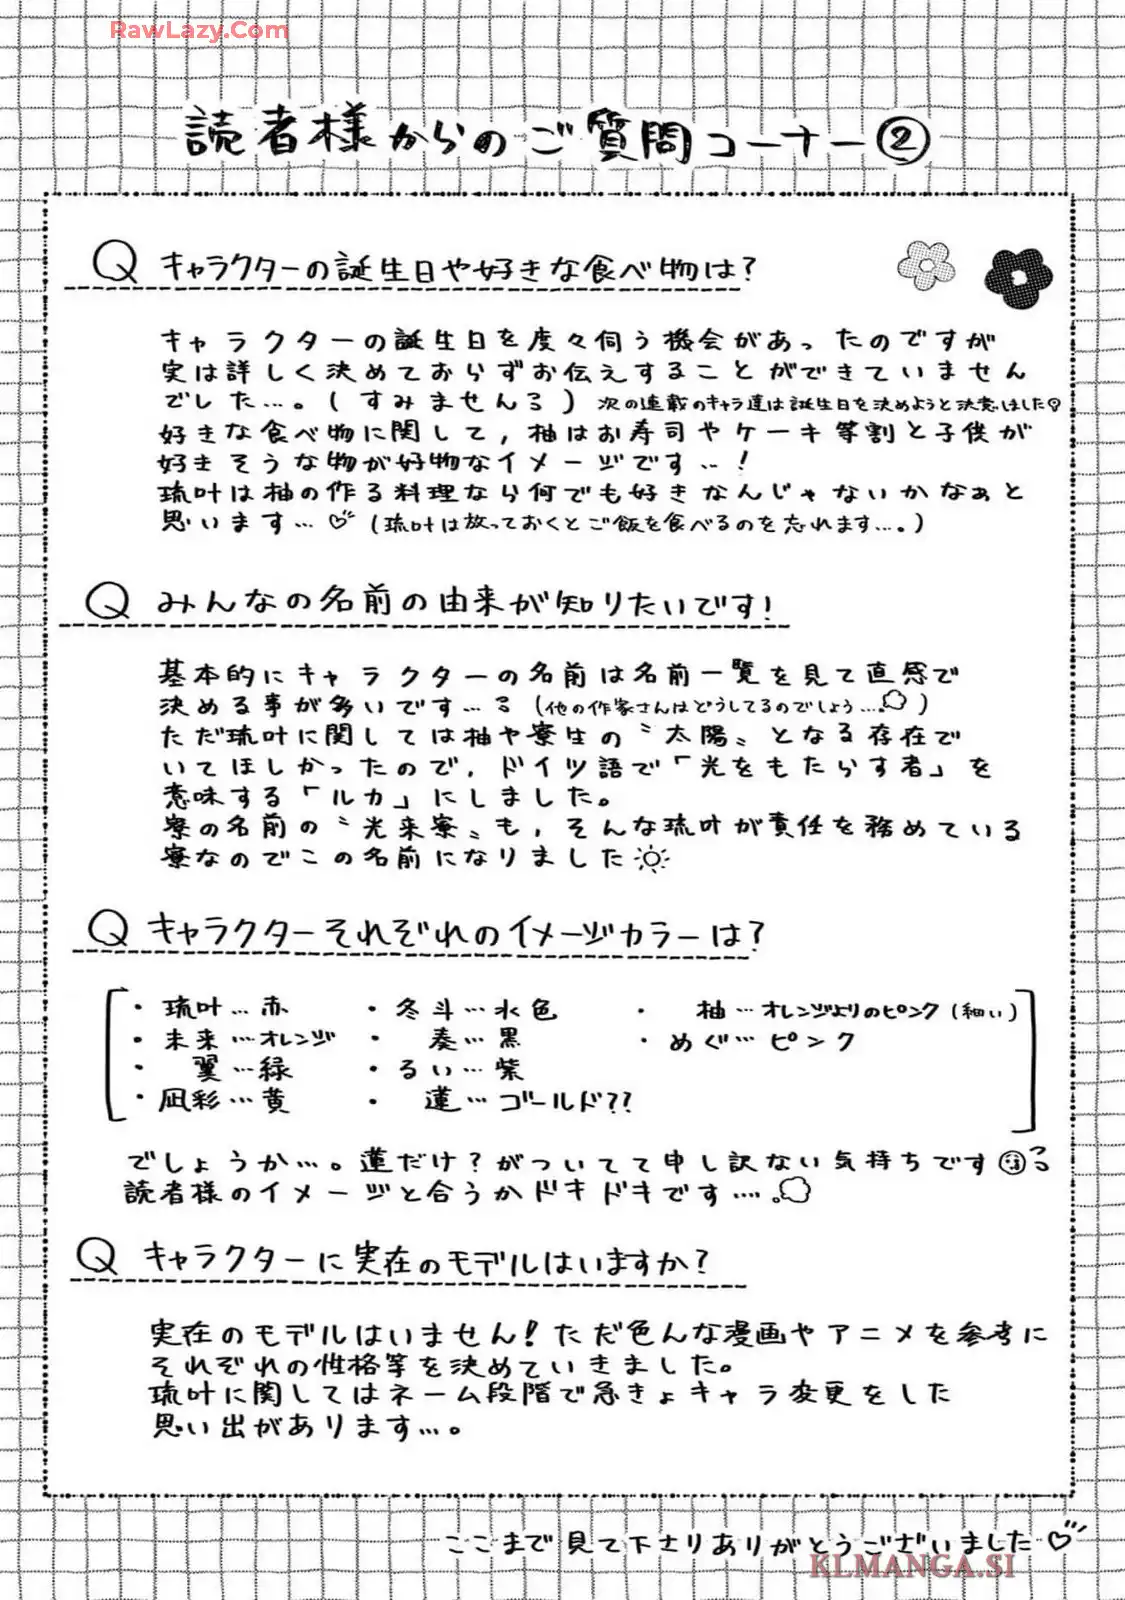 RawLazy.Com
読者様からのご質問コーナー②
Q キャラクターの誕生日や好きな食べ物は?
キャラクターの誕生日を度々伺う機会があったのですが
実は詳しく決めておらずお伝えすることができていません
でした…。(すみません) 次の連載のキャラ達は誕生日を決めようと決意しました
好きな食べ物に関して,柚はお寿司やケーキ等割と子供が
好きそうな物が好物なイメージです…!
琉叶は柚の作る料理なら何でも好きなんじゃないかなぁと
思います…♡(琉叶は放っておくとご飯を食べるのを忘れます…。)
Q みんなの名前の由来が知りたいです!
基本的にキャラクターの名前は名前一覧を見て直感で
決める事が多いです… (他の作家さんはどうしてるのでしょう…)
ただ琉叶に関しては柚や寮生の〝太陽〟となる存在で
いてほしかったので,ドイツ語で「光をもたらす者」を
意味する「ルカ」にしました。
寮の名前の〝光来寮〟も,そんな琉叶が責任を務めている
寮なのでこの名前になりました
Q キャラクターそれぞれのイメージカラーは?
・琉叶…赤 ・冬斗…水色 ・柚…オレンジよりのピンク(細い)
・未来…オレンジ ・奏…黒 ・めぐ…ピンク
・翼…緑 ・るい…紫
・凪彩…黄 ・蓮…ゴールド??
でしょうか…。蓮だけ?がついてて申し訳ない気持ちです
読者様のイメージと合うかドキドキです…。
Q キャラクターに実在のモデルはいますか?
実在のモデルはいません!ただ色んな漫画やアニメを参考に
それぞれの性格等を決めていきました。
琉叶に関してはネーム段階で急きょキャラ変更をした
思い出があります…。
ここまで見て下さりありがとうございました♡
KLMANGA.SI